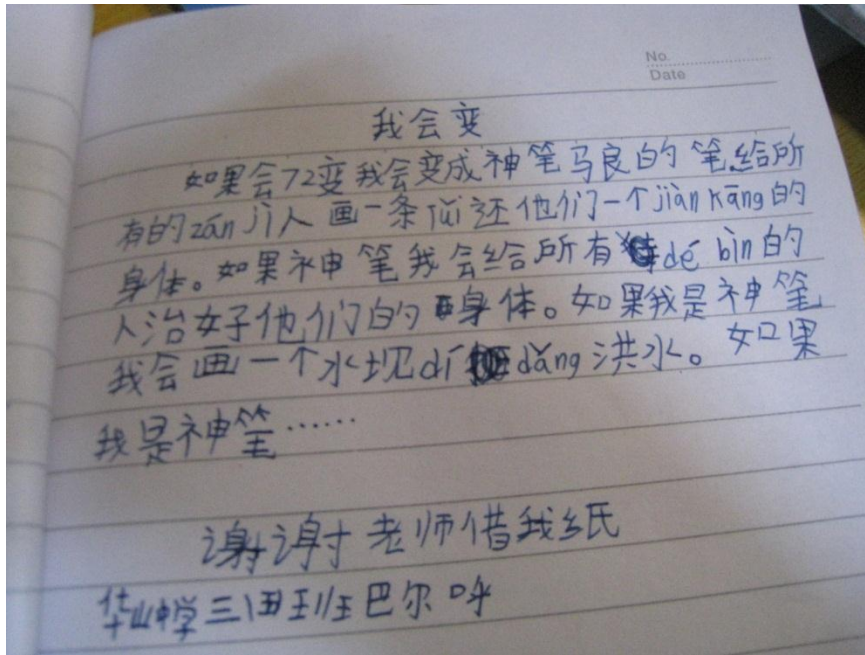 No.
Date
我会变
如果会72变我会变成神笔马良的笔给所
有的zán jì人画一条tǔi还他们一个jiàn kāng的
身体。如果神笔我会给所有dé bìn的
人治好他们的身体。如果我是神笔
我会画一个水坝dǐ dǎng洪水。如果
我是神笔……
谢谢老师借我纸
华山中学三(四)班 巴尔呼